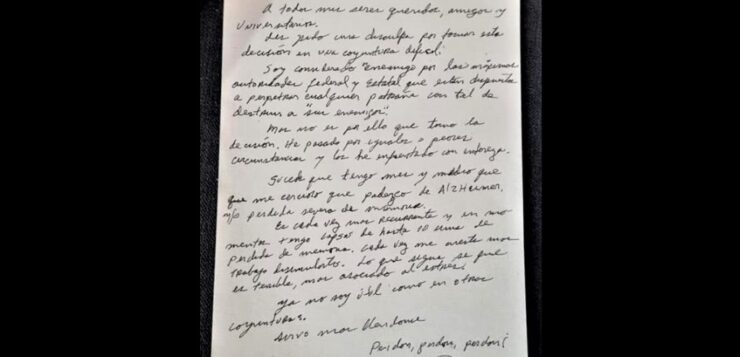 A todos mis seres queridos, amigos y
universitarios.
Les pido una disculpa por tomar esta
decisión en una coyuntura difícil.
Soy considerado "Enemigo por las máximas
autoridades federal y Estatal que están dispuestas
a perpetrar cualquier patraña con tal de
destruir a "sus enemigos".
Mas no es por ello que tomo la
decisión. He pasado por iguales o peores
circunstancias y los he enfrentado con entereza.
Sucede que tengo mes y medio que
me cercioro que padezco de Alzheimer,
y/o perdida severa de memoria.
Es cada vez mas recurrente y en mo
mentos tengo lapsos de hasta 10 de
perdida de memoria. Cada vez me cuesta mas
trabajo Lo que sigue se que
es terrible, mas asociado al estrés.
Ya no soy útil como en otras
coyunturas.
mar
Perdon, perdon, perdon!